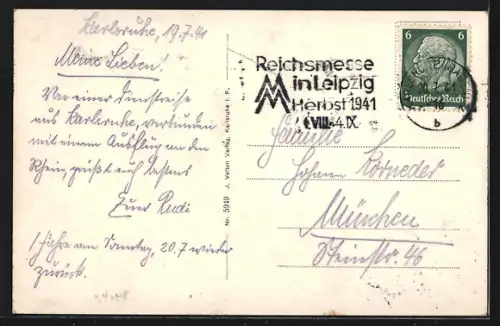 Karlsruhe, 19.7.41
Meine Lieben!
Von einer Dienstreise
aus Karlsruhe, verbunden
mit einem Ausflug an den
Rhein, grüßt euch bestens
Euer Rudi
fahre am Sonntag, 20.7 wieder
zurück.
Nr. 5949 J. Velten Verlag, Karlsruhe i. B.
Reichsmesse
in Leipzig
Herbst 1941
VIII.-4.IX.
6 6
Deutsches Reich
b
Familie
Johann Korneder
München
Steinstr. 46